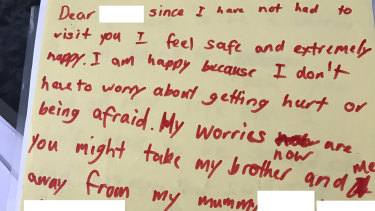 Dear since I have not had to
visit you I feel safe and extremely
happy. I am happy because I don't
have to worry about getting hurt or
being afraid. My worries now are
you might take my brother and me
away from my mummy